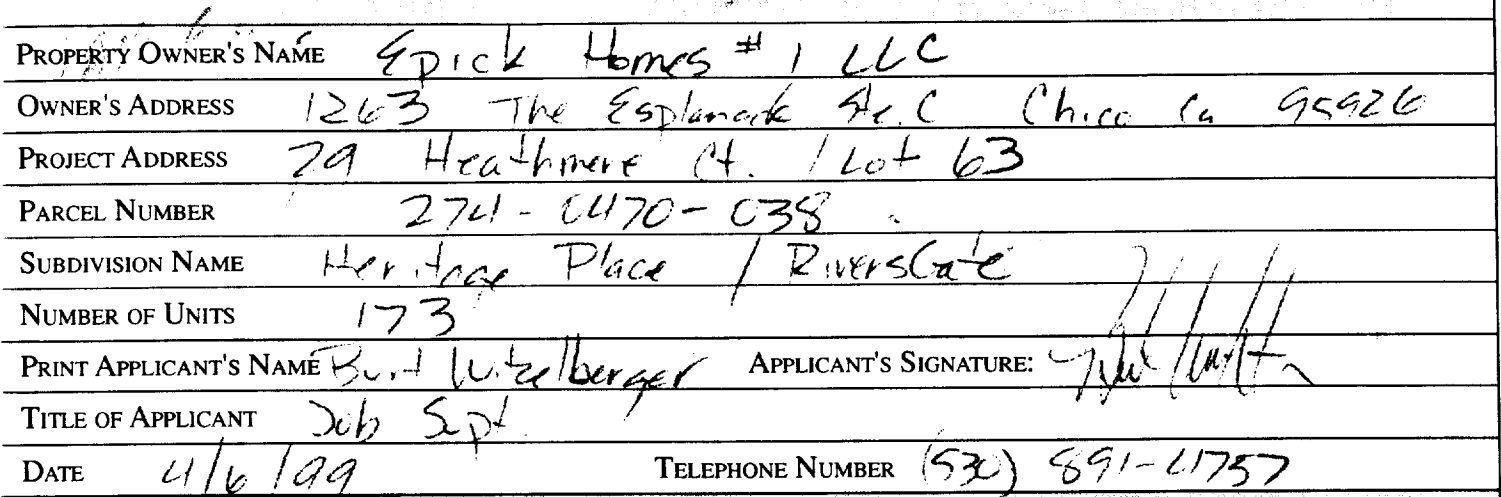 PROPERTY OWNER'S NAME Epick Homes #1 LLC
OWNER'S ADDRESS 1263 The Esplanade Ste. C Chico Ca 95926
PROJECT ADDRESS 29 Heathmere Ct. / Lot 63
PARCEL NUMBER 274-0470-038
SUBDIVISION NAME Heritage Place / RiversGate
NUMBER OF UNITS 173
PRINT APPLICANT'S NAME Burt Witzelberger APPLICANT'S SIGNATURE:
TITLE OF APPLICANT Job Supt.
DATE 4/6/99 TELEPHONE NUMBER (530) 891-4757